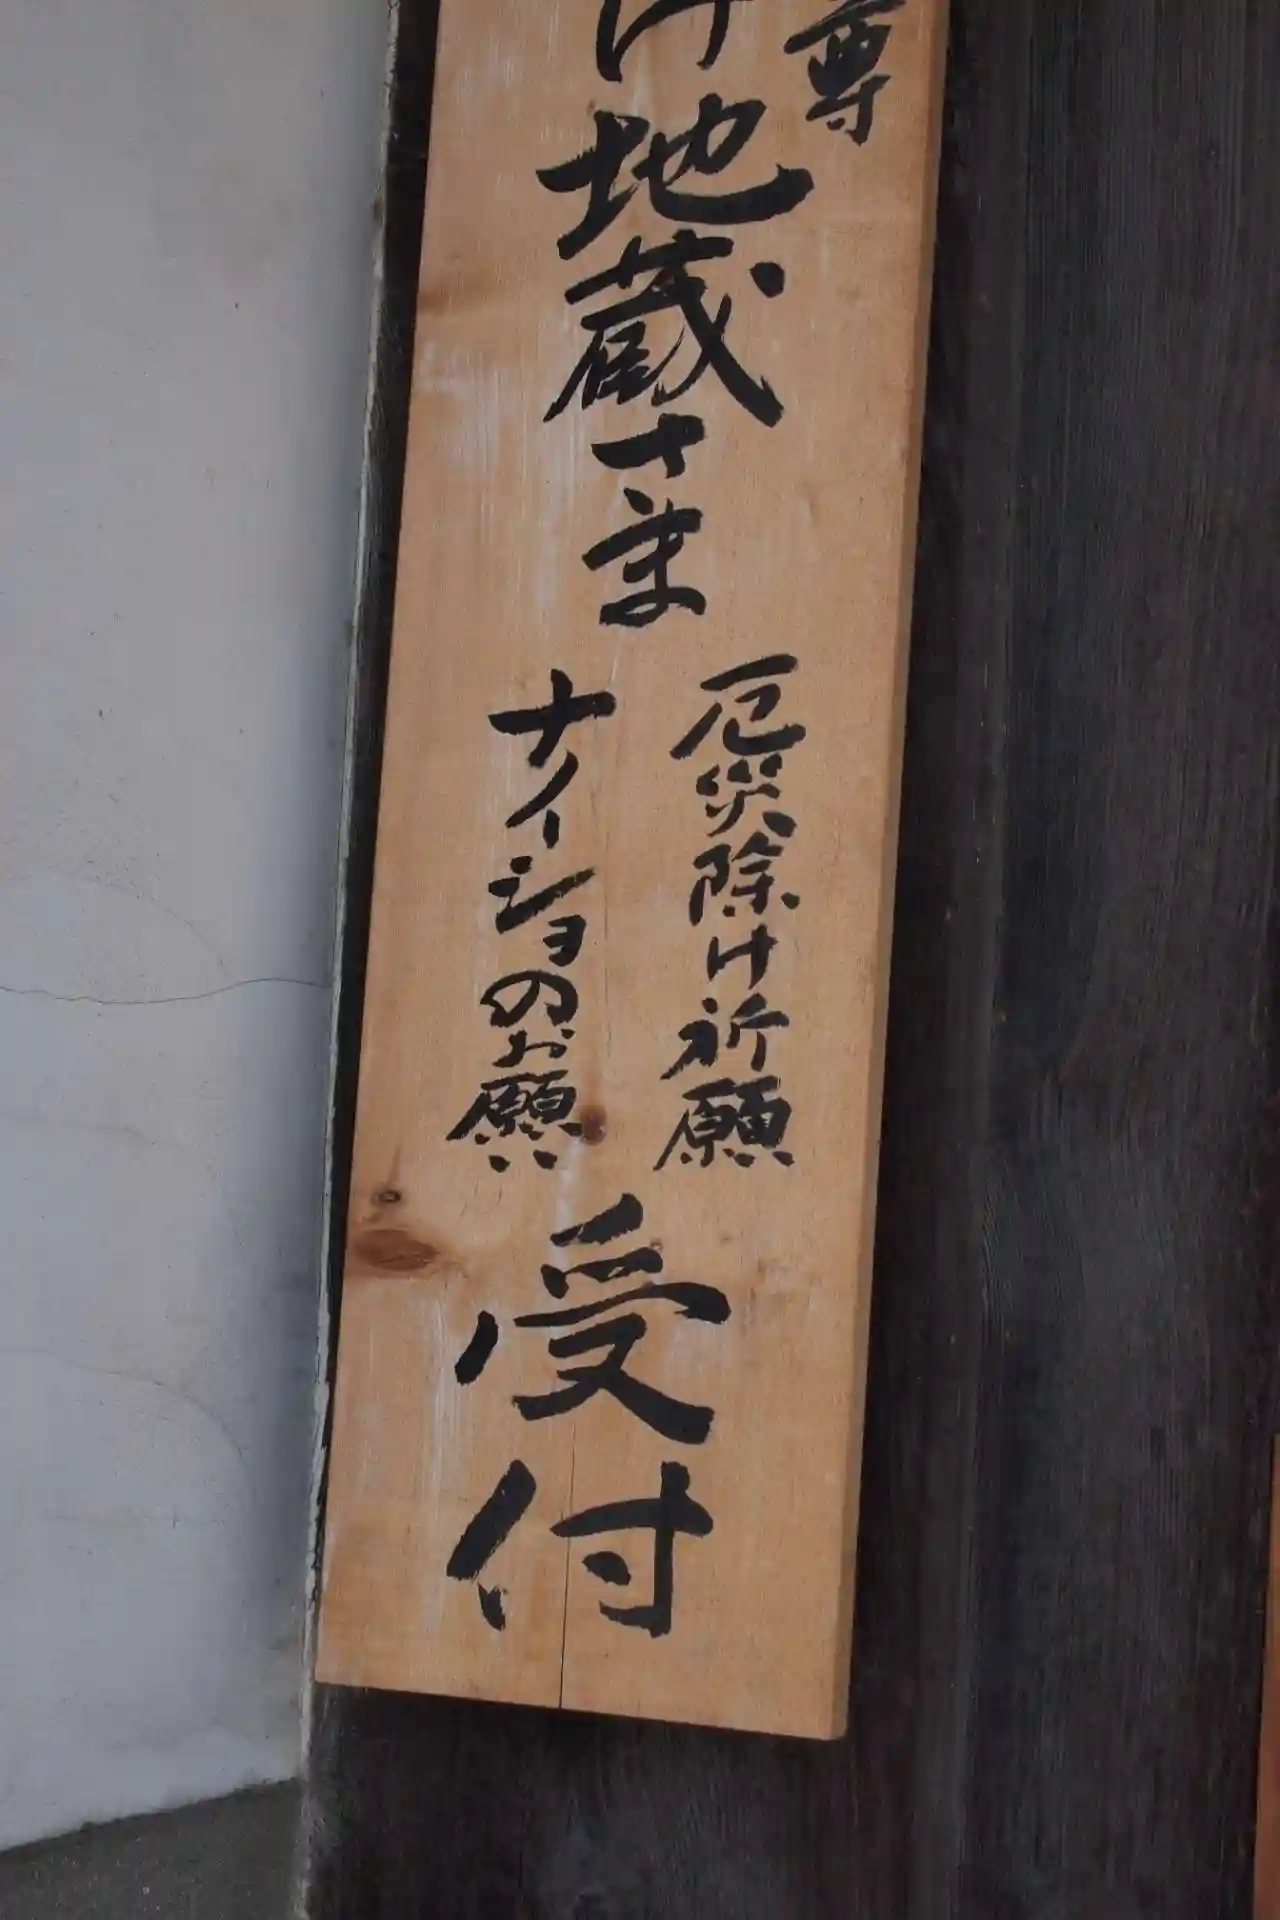 尊
け地蔵さま
厄災除け祈願
ナイショのお願
受付